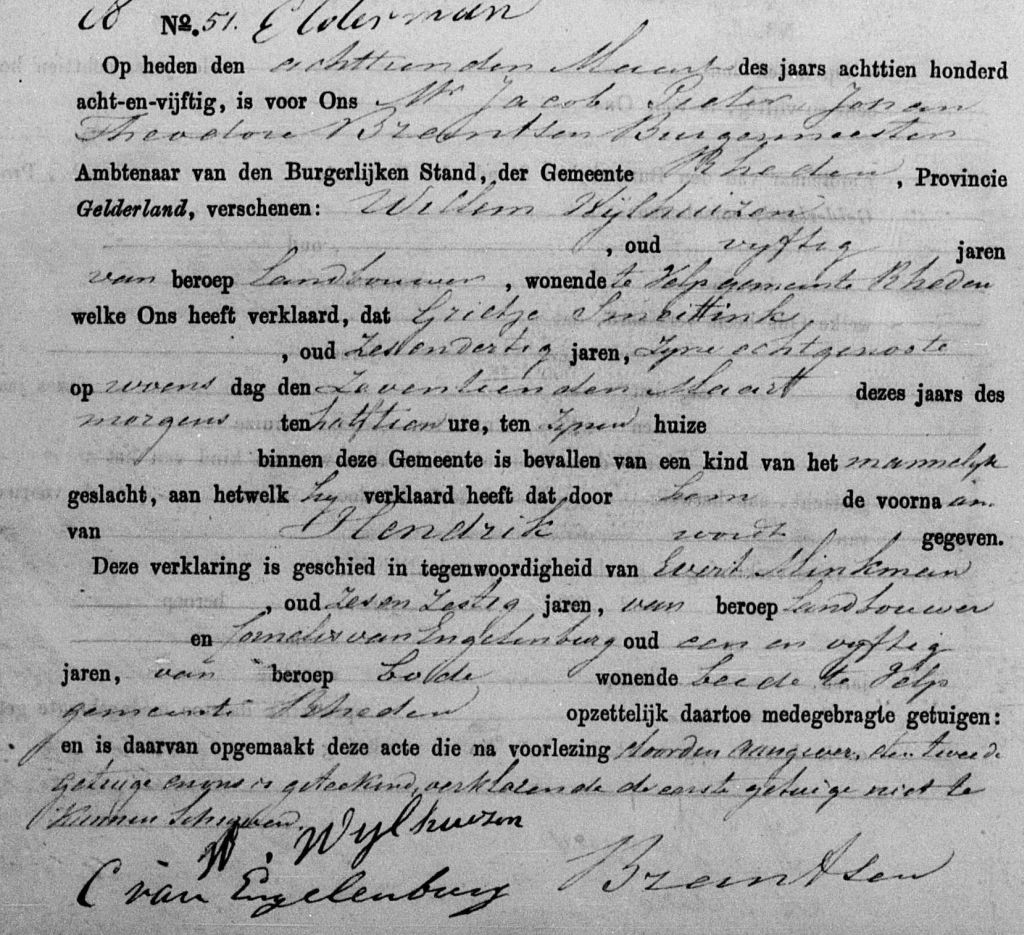 No. 51. Elderman
Op heden den achttienden Maart des jaars achttien honderd
acht-en-vijftig, is voor Ons Mr Jacob Pieter Johan
Theodore Brantsen Burgemeester
Ambtenaar van den Burgerlijken Stand, der Gemeente Rheden, Provincie
Gelderland, verschenen: Willem Wijlhuizen
, oud vyftig jaren
van beroep Landbouwer, wonende te Velp gemeente Rheden
welke Ons heeft verklaard, dat Grietje Smeittink,
, oud Zesendertig jaren, Zyne echtgenoote
op woens dag den Zeventienden Maart dezes jaars des
morgens ten half tien ure, ten Zynen huize
binnen deze Gemeente is bevallen van een kind van het mannelyk
geslacht, aan hetwelk hy verklaard heeft dat door hem de voornaam
van Hendrik wordt gegeven.
Deze verklaring is geschied in tegenwoordigheid van Evert Minkman
, oud Zes en Zestig jaren, van beroep Landbouwer
en Cornelis van Engelenburg oud een en vyftig
jaren, van beroep bode wonende beide te Velp
gemeente Rheden opzettelijk daartoe medegebragte getuigen:
en is daarvan opgemaakt deze acte die na voorlezing door den aangever, den tweede
getuige en ons is geteekend, verklarende de eerste getuige niet te
kunnen schryven.
W. Wylhuizen
C van Engelenburg Brantsen